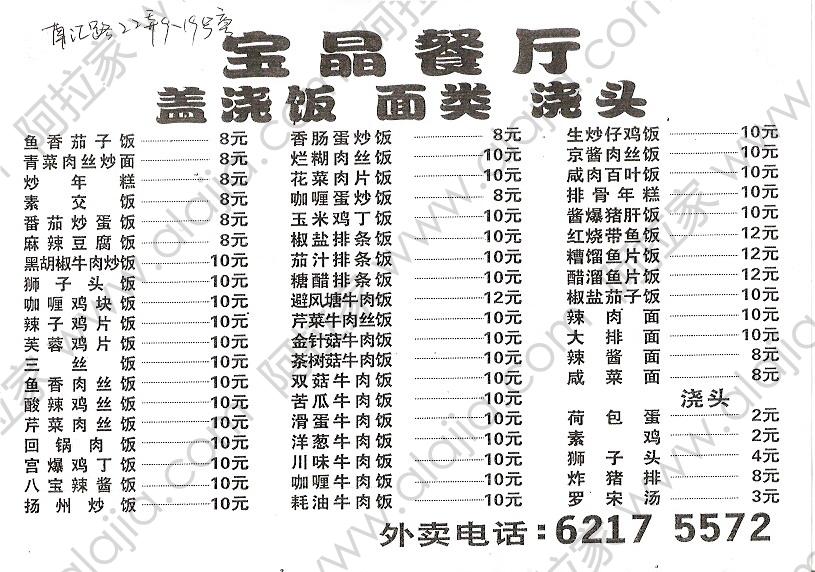 南汇路22弄9-19号
宝晶餐厅
盖浇饭 面类 浇头
鱼香茄子饭 8元
青菜肉丝炒面 8元
炒年糕 8元
素交饭 8元
番茄炒蛋饭 8元
麻辣豆腐饭 8元
黑胡椒牛肉炒饭 10元
狮子头饭 10元
咖喱鸡块饭 10元
辣子鸡片饭 10元
芙蓉鸡片饭 10元
三丝饭 10元
鱼香肉丝饭 10元
酸辣鸡丝饭 10元
芹菜肉丝饭 10元
回锅肉饭 10元
宫爆鸡丁饭 10元
八宝辣酱饭 10元
扬州炒饭 10元
香肠蛋炒饭 8元
烂糊肉丝饭 10元
花菜肉片饭 10元
咖喱蛋炒饭 8元
玉米鸡丁饭 10元
椒盐排条饭 10元
茄汁排条饭 10元
糖醋排条饭 10元
避风塘牛肉饭 12元
芹菜牛肉丝饭 10元
金针菇牛肉饭 10元
茶树菇牛肉饭 10元
双菇牛肉饭 10元
苦瓜牛肉饭 10元
滑蛋牛肉饭 10元
洋葱牛肉饭 10元
川味牛肉饭 10元
咖喱牛肉饭 10元
耗油牛肉饭 10元
生炒仔鸡饭 10元
京酱肉丝饭 10元
咸肉百叶饭 10元
排骨年糕 10元
酱爆猪肝饭 10元
红烧带鱼饭 12元
糟馏鱼片饭 12元
醋溜鱼片饭 12元
椒盐茄子饭 10元
辣肉面 10元
大排面 10元
辣酱面 8元
咸菜面 8元
浇头
荷包蛋 2元
素鸡 2元
狮子头 4元
炸猪排 8元
罗宋汤 3元
外卖电话：6217 5572
阿拉家 www.alajia.com